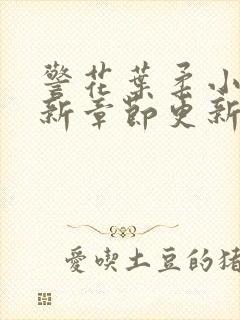 警花葉柔小
新章節更新
愛喫土豆的猪